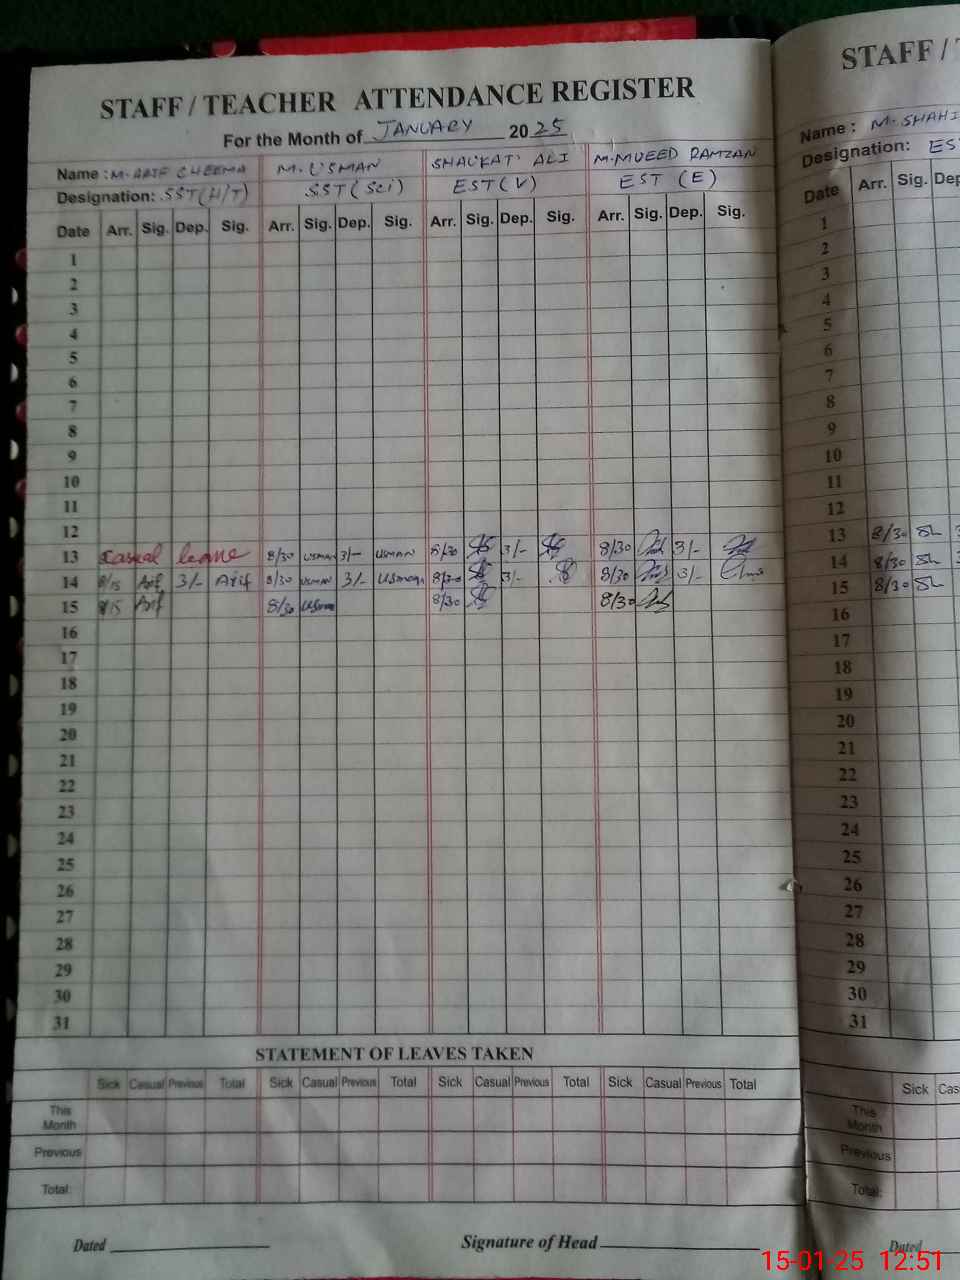 STAFF / TEACHER ATTENDANCE REGISTER
For the Month of JANUARY 2025
Name : M. ARIF CHEEMA M. USMAN SHAUKAT ALI M. MUEED RAMZAN
Designation: SST(H/T) SST(Sci) EST(V) EST (E)
Date Arr. Sig. Dep. Sig. Arr. Sig. Dep. Sig. Arr. Sig. Dep. Sig. Arr. Sig. Dep. Sig.
1
2
3
4
5
6
7
8
9
10
11
12
13 Casual leave 8/30 USMAN 3/- USMAN 8/30 3/- 8/30 3/-
14 8/15 Arif 3/- Arif 8/30 USMAN 3/- Usman 8/30 3/- 8/30 3/-
15 8/15 Arif 8/30 Usman 8/30 8/30
16
17
18
19
20
21
22
23
24
25
26
27
28
29
30
31
STATEMENT OF LEAVES TAKEN
Sick Casual Previous Total Sick Casual Previous Total Sick Casual Previous Total Sick Casual Previous Total
This
Month
Previous
Total:
Dated Signature of Head
STAFF /
Name : M. SHAHI
Designation: ES
Date Arr. Sig. Dep
1
2
3
4
5
6
7
8
9
10
11
12
13 8/30 Sh 3
14 8/30 Sh 3
15 8/30 Sh
16
17
18
19
20
21
22
23
24
25
26
27
28
29
30
31
Sick Cas
This
Month
Previous
Total:
Dated
15-01-25 12:51